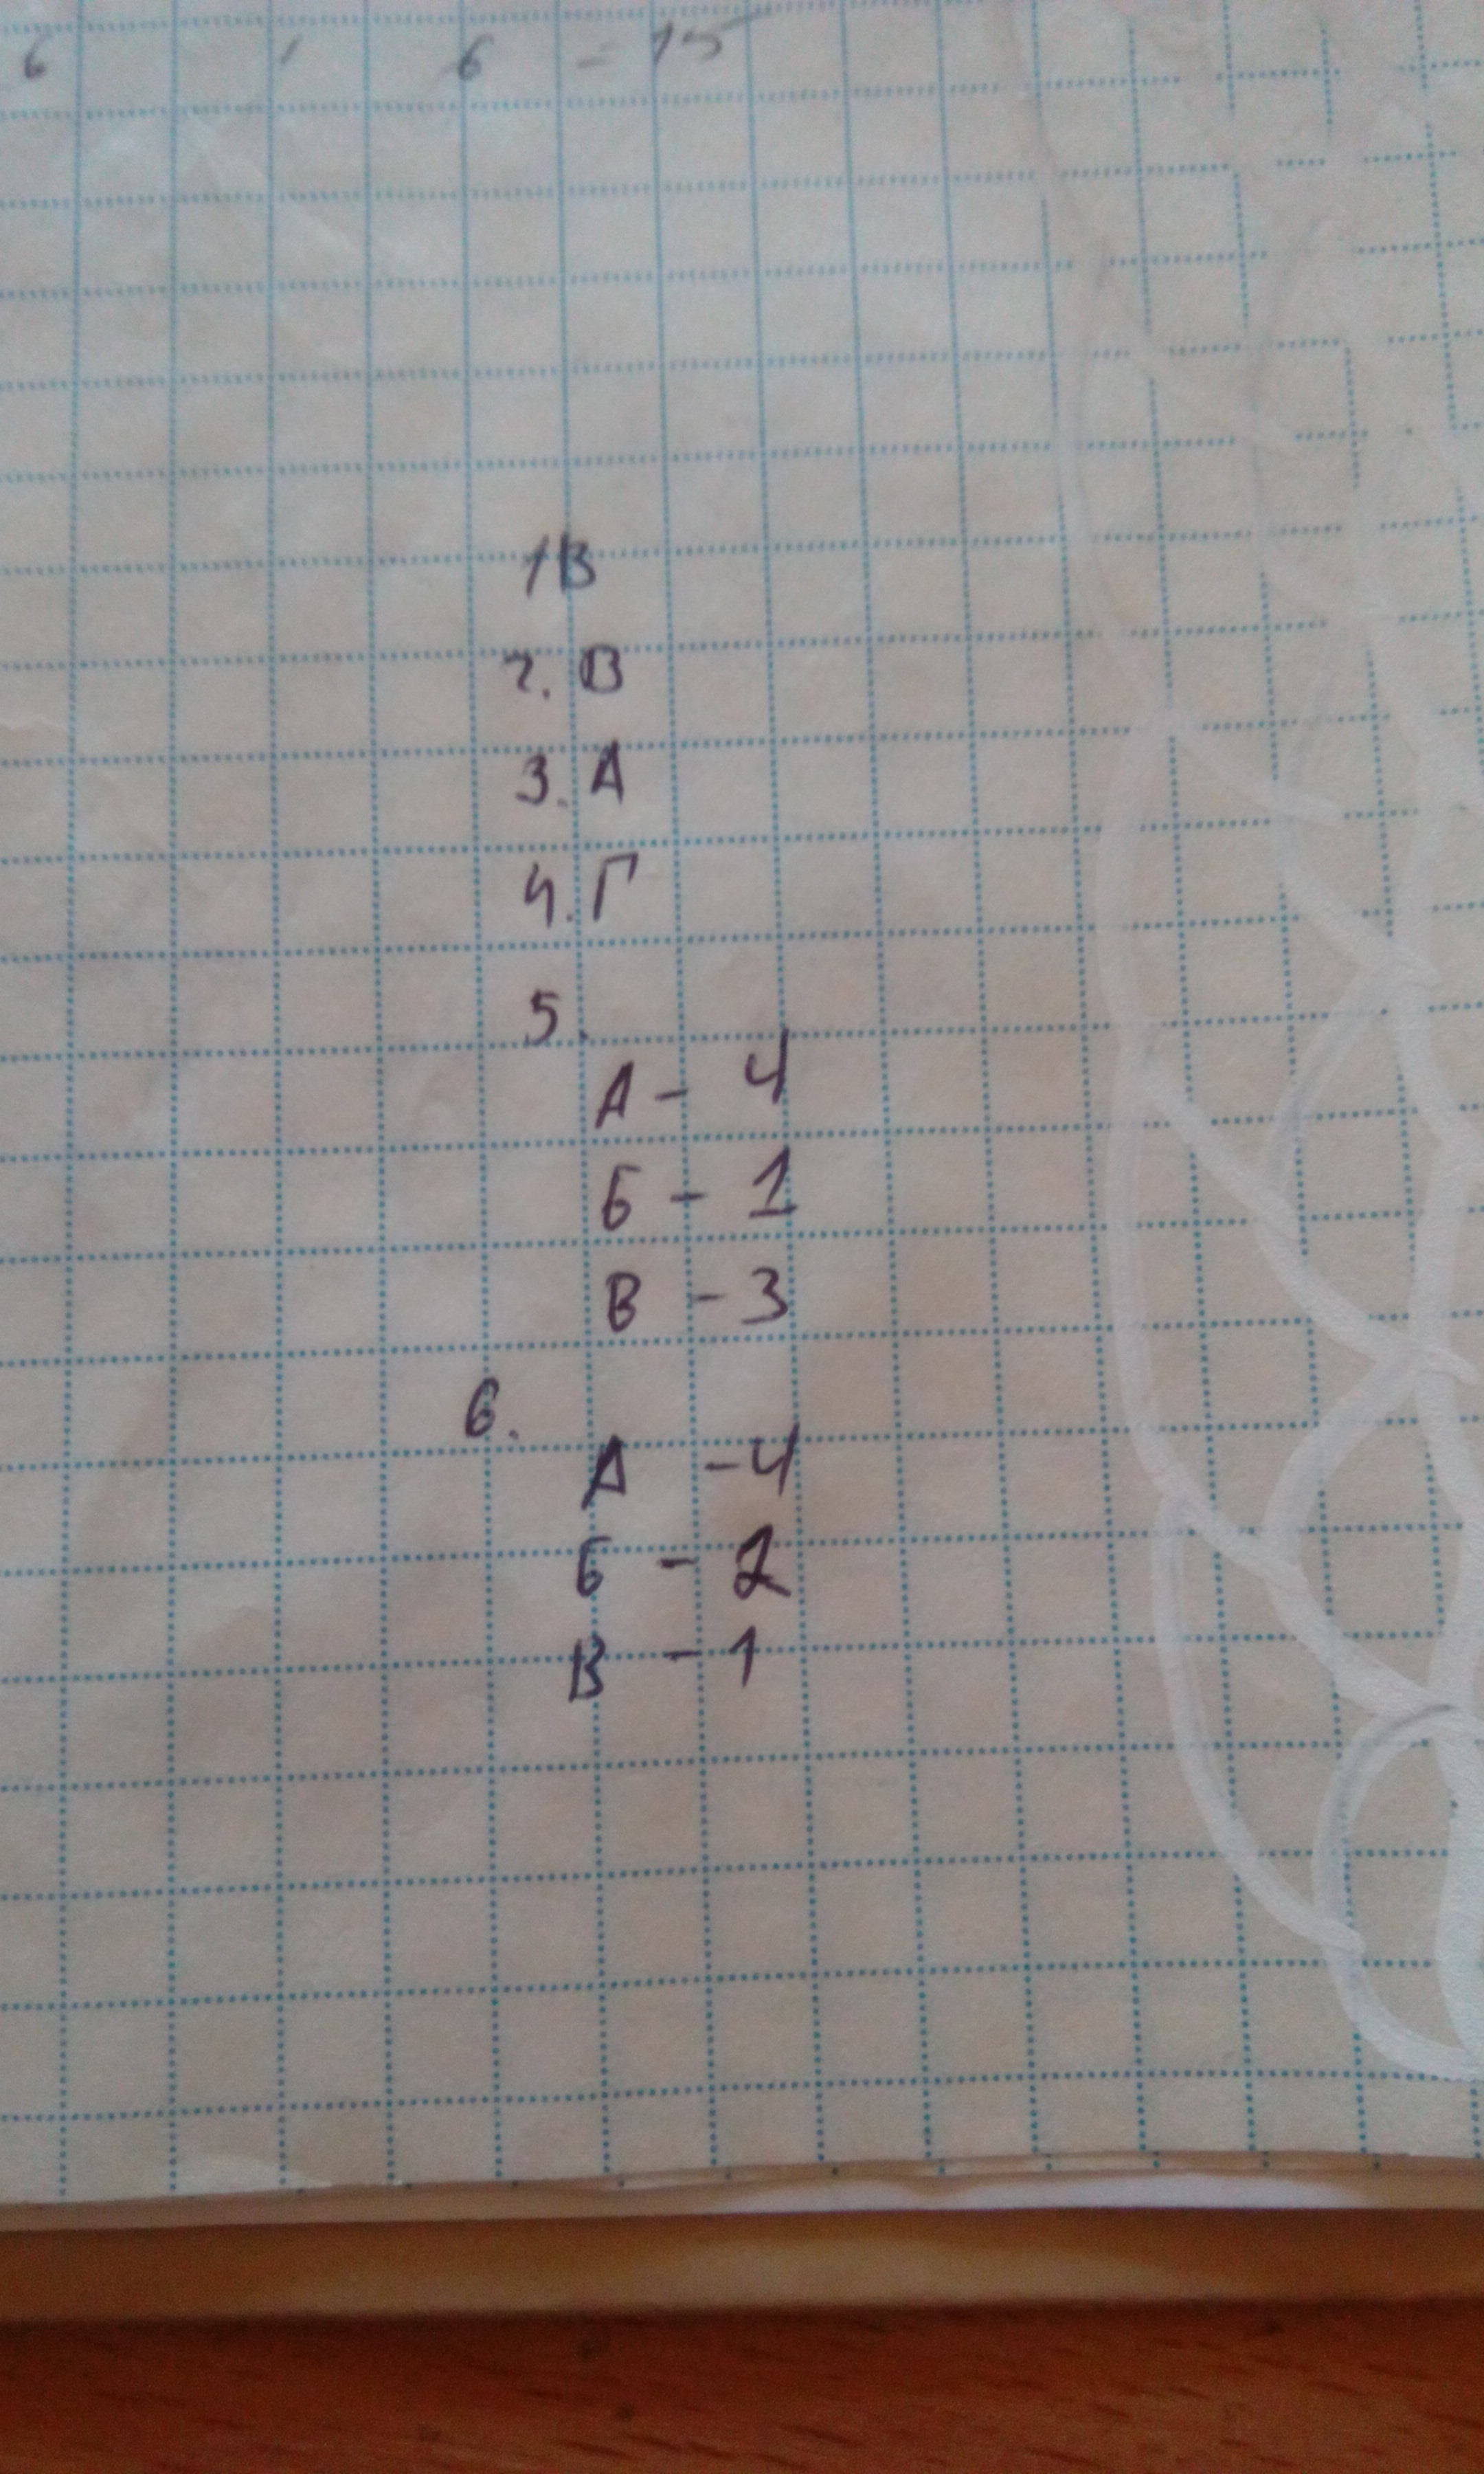 6 6 = 15
1 В
2. В
3. А
4. Г
5.
А - 4
Б - 1
В - 3
6.
А - 4
Б - 2
В - 1